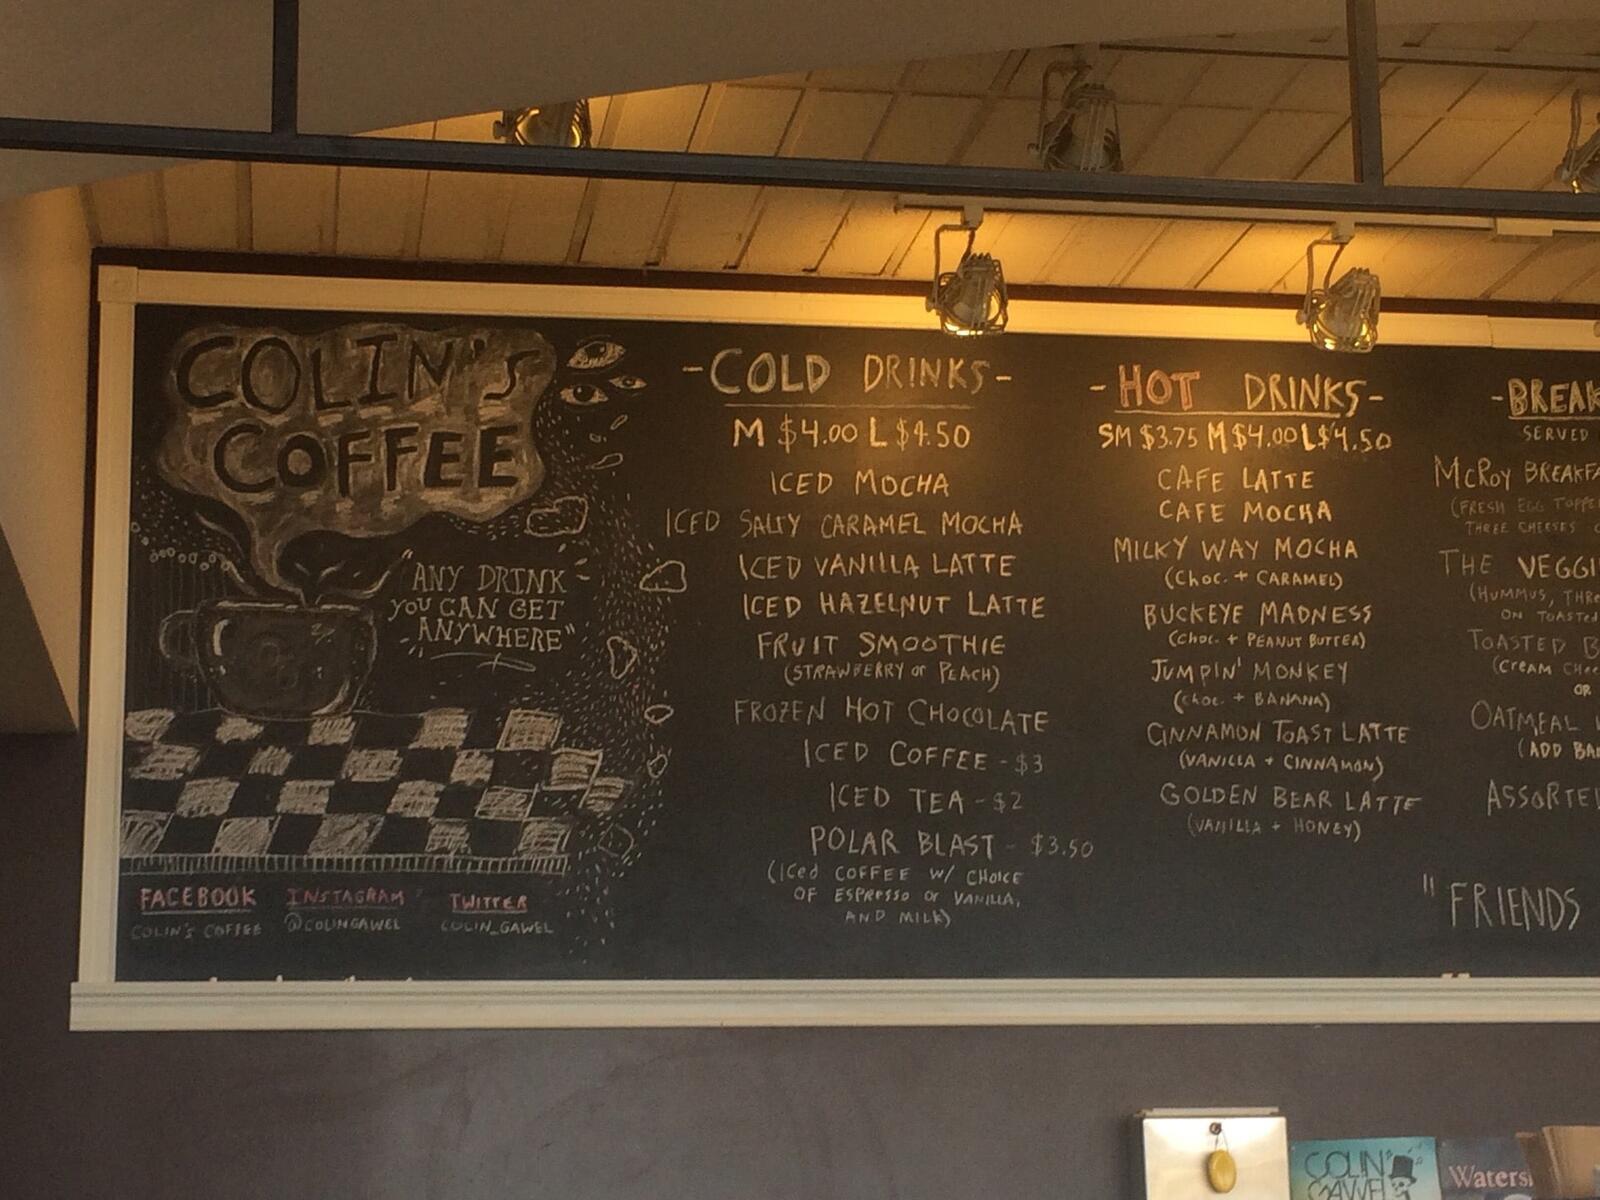 COLIN'S
COFFEE
"ANY DRINK
YOU CAN GET
ANYWHERE"
FACEBOOK
COLIN'S COFFEE
INSTAGRAM
@COLINGAWEL
TWITTER
COLIN_GAWEL
-COLD DRINKS-
M $4.00 L $4.50
ICED MOCHA
ICED SALTY CARAMEL MOCHA
ICED VANILLA LATTE
ICED HAZELNUT LATTE
FRUIT SMOOTHIE
(STRAWBERRY or PEACH)
FROZEN HOT CHOCOLATE
ICED COFFEE - $3
ICED TEA - $2
POLAR BLAST - $3.50
(Iced COFFEE W/ CHOICE
OF ESPRESSO or VANILLA,
AND MILK)
-HOT DRINKS-
SM $3.75 M $4.00 L $4.50
CAFE LATTE
CAFE MOCHA
MILKY WAY MOCHA
(Choc. + CARAMEL)
BUCKEYE MADNESS
(Choc. + PEANUT BUTTER)
JUMPIN' MONKEY
(choc. + BANANA)
CINNAMON TOAST LATTE
(VANILLA + CINNAMON)
GOLDEN BEAR LATTE
(VANILLA + HONEY)
-BREAK
SERVED
McRoy BREAKFA
(FRESH EGG TOPPE
THREE CHEESES
THE VEGGI
(HUMMUS, THRE
ON TOASTED
TOASTED B
(CREAM CHEE
OR
OATMEAL
(ADD BA
ASSORTE
"FRIENDS
COLIN
GAWEL
Waters